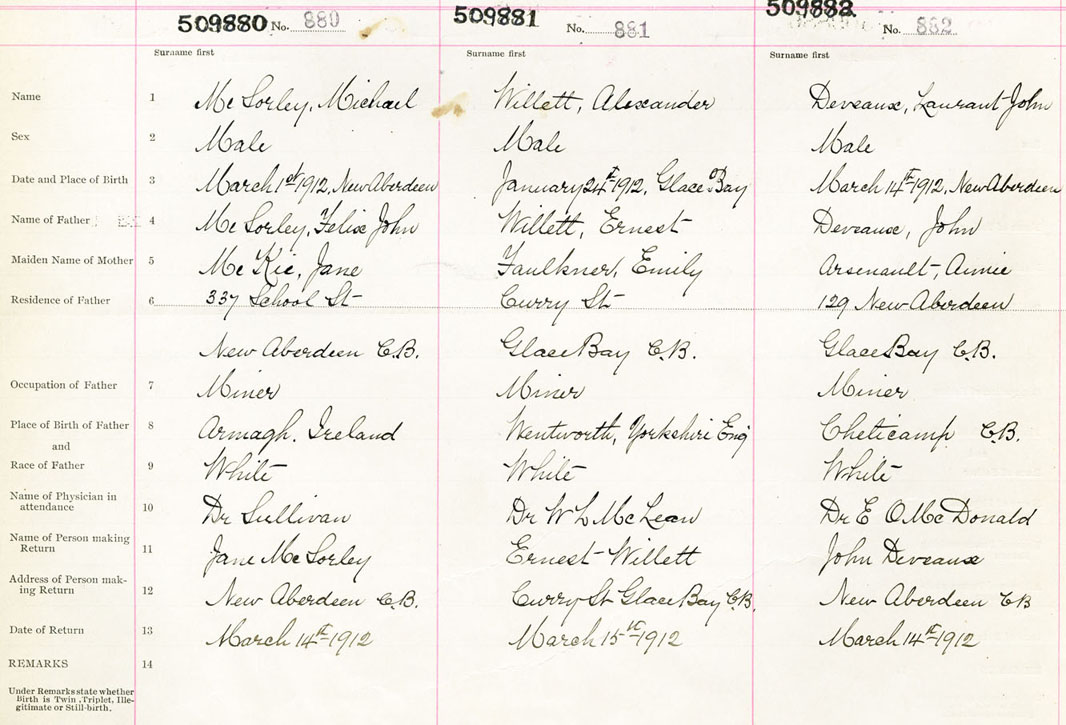 509880 No. 880 509881 No. 881 509882 No. 882
Surname first Surname first Surname first
Name 1 Mc Sorley, Michael Willett, Alexander Deveaux, Laurant John
Sex 2 Male Male Male
Date and Place of Birth 3 March 1st 1912, New Aberdeen January 24th 1912, Glace Bay March 14th 1912, New Aberdeen
Name of Father 4 Mc Sorley, Felix John Willett, Ernest Deveaux, John
Maiden Name of Mother 5 Mc Kie, Jane Faulkner, Emily Arsenault, Annie
Residence of Father 6 337 School St Curry St 129 New Aberdeen
New Aberdeen C.B. Glace Bay C.B. Glace Bay C.B.
Occupation of Father 7 Miner Miner Miner
Place of Birth of Father 8 Armagh. Ireland Wentworth, Yorkshire Eng Cheticamp C.B.
and
Race of Father 9 White White White
Name of Physician in
attendance 10 Dr Sullivan Dr W L McLean Dr E O Mc Donald
Name of Person making
Return 11 Jane Mc Sorley Ernest Willett John Deveaux
Address of Person mak-
ing Return 12 New Aberdeen C.B. Curry St Glace Bay C.B. New Aberdeen CB
Date of Return 13 March 14th 1912 March 15th 1912 March 14th 1912
REMARKS 14
Under Remarks state whether
Birth is Twin, Triplet, Ille-
gitimate or Still-birth.